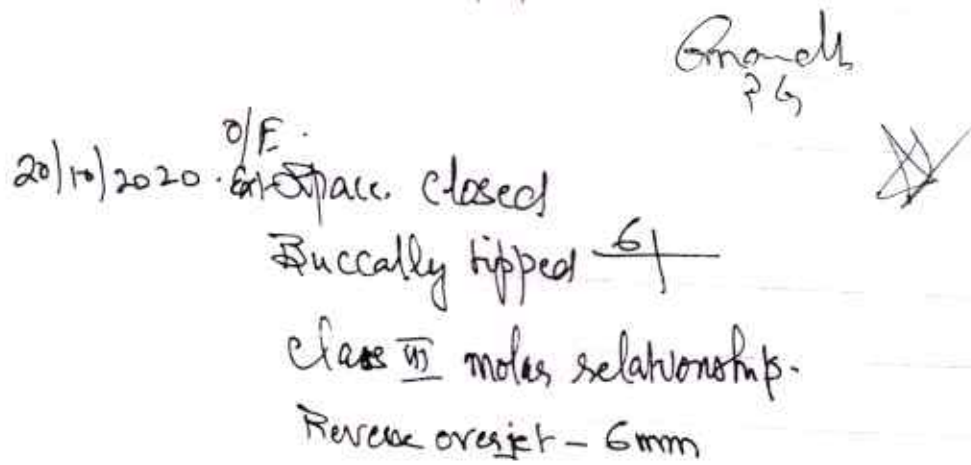 PG
O/E.
20/10/2020. Ext Space. closed
Buccally tipped 6|
class III molar relationship.
Reverse overjet - 6mm